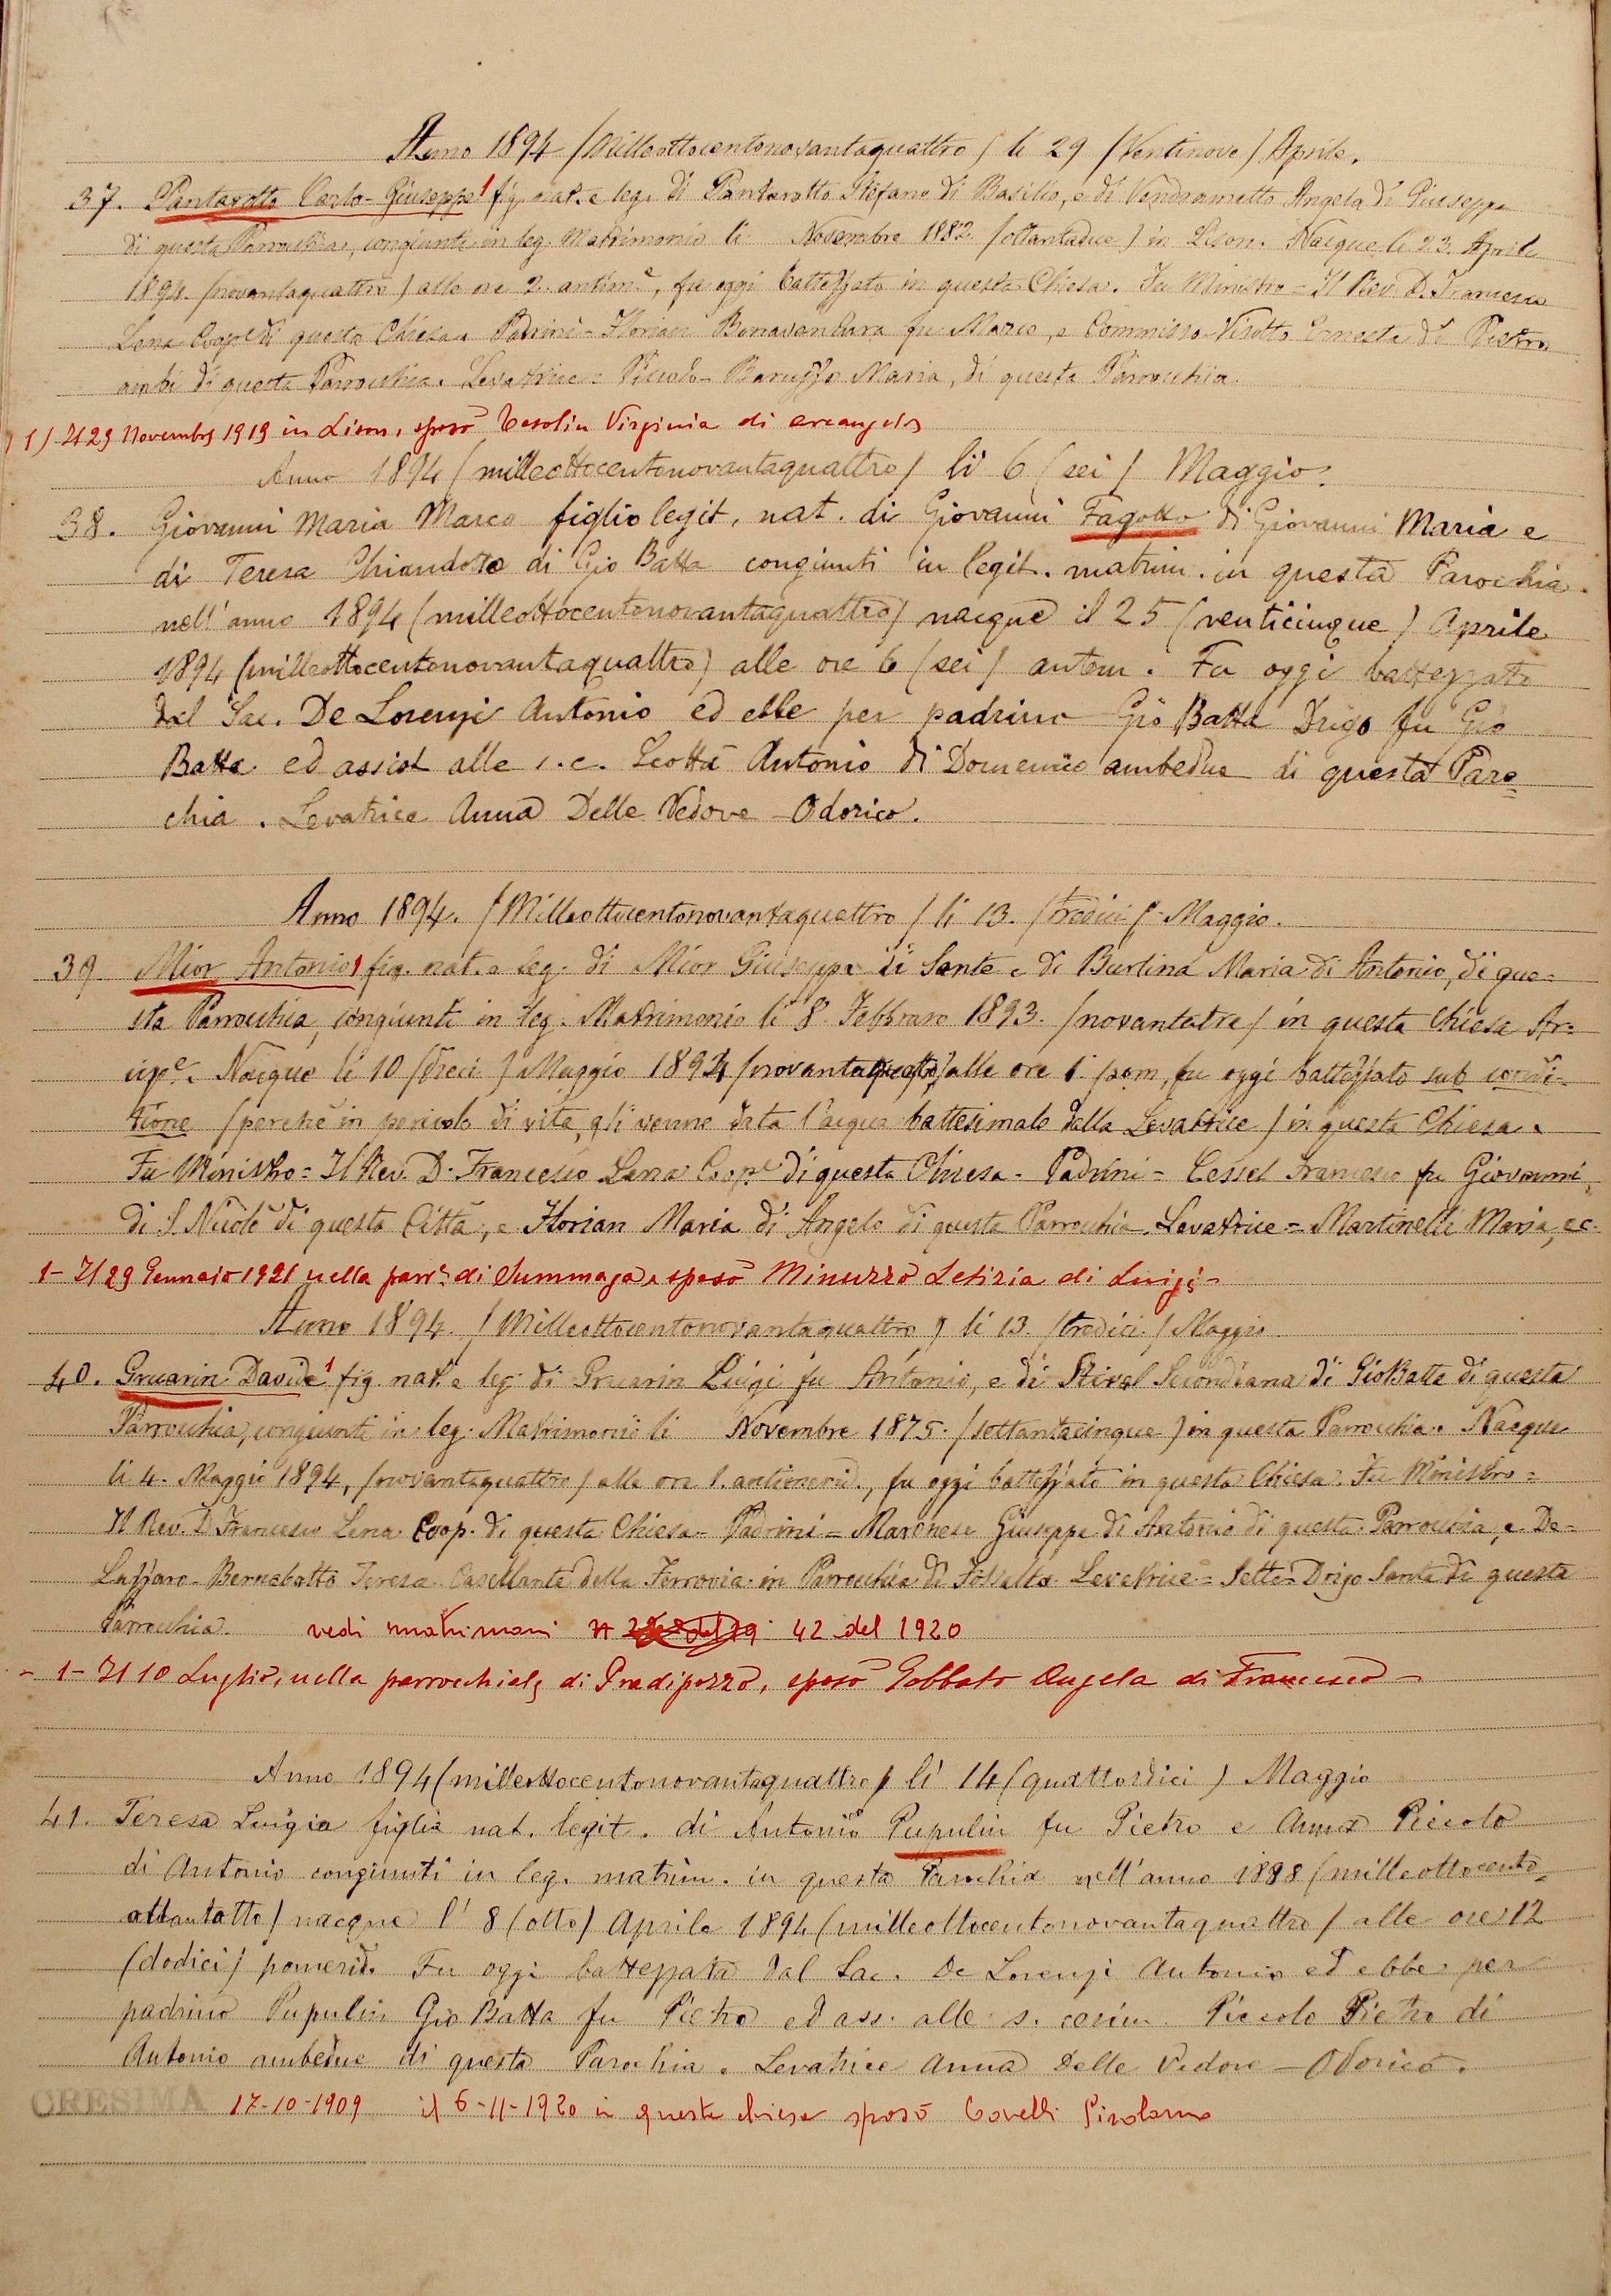 Anno 1894 /Milleottocentonovantaquattro/ li 29 /Ventinove/ Aprile.
37. Pantarotto Carlo-Giuseppe 1 fig. nat. e leg. di Pantarotto Stefano di Basilio, e di Vendrametto Angela di Giuseppe
di questa Parrochia, congiunti in leg. Matrimonio li Novembre 1882 /ottantadue/ in Lison. Nacque li 23. Aprile
1894. /novantaquattro/ alle ore 2. antim.e, fu oggi battezzato in questa Chiesa. Fu Ministro = Il Rev. D. Francesco
Lena Coop.e di questa Chiesa. Padrini = Florian Bonaventura fu Marco, e Commisso-Visotto Ernesta di Pietro
ambi di questa Parrochia. Levatrice = Piccolo-Baruzzo Maria, di questa Parrochia.
1) Il 29 Novembre 1919 in Lison, sposò Tesolin Virginia di Arcangelo
Anno 1894 (milleottocentonovantaquattro) li 6 (sei) Maggio.
38. Giovanni Maria Marco figlio legit. nat. di Giovanni Fagotto di Giovanni Maria e
di Teresa Chiandoto di Gio Batta congiunti in legit. matrim. in questa Parochia
nell'anno 1894 (milleottocentonovantaquattro) nacque il 25 (venticinque) Aprile
1894 (milleottocentonovantaquattro) alle ore 6 (sei) antem. Fu oggi battezzato
dal Sac. De Lorenzi Antonio ed ebbe per padrino Gio Batta Drigo fu Gio
Batta ed assist alle s. c. Scottà Antonio di Domenico ambedue di questa Paro=
chia. Levatrice Anna Delle Vedove-Odorico.
Anno 1894. /Milleottocentonovantaquattro/ li 13. /tredici/ Maggio.
39 Mior Antonio 1 fig. nat. e leg. di Mior Giuseppe di Sante e di Burlina Maria di Antonio, di que=
sta Parrochia, congiunti in leg. Matrimonio li 8 Febbraro 1893. /novantatre/ in questa Chiesa Ar=
cip.e. Nacque li 10 /dieci/ Maggio 1894 /novantaquattro/ alle ore 1. pom, fu oggi battezzato sub condi=
tione /perchè in pericolo di vita, gli venne data l'acqua battesimale dalla Levatrice/ in questa Chiesa.
Fu Ministro = Il Rev. D. Francesco Lena Coop.e di questa Chiesa. Padrini = Cessel Francesco fu Giovanni,
di S. Nicolò di questa Città, e Florian Maria di Angelo di questa Parrochia. Levatrice = Martinelli Maria, ec.
1- Il 29 Gennaio 1921 nella parr. di Summaga sposò Minuzzo Letizia di Luigi-
Anno 1894. /Milleottocentonovantaquattro/ li 13. /tredici/ Maggio
40. Gruarin Davide 1 fig. nat. e leg. di Gruarin Luigi fu Antonio, e di Stival Secondiana di GioBatta di questa
Parrochia, congiunti in leg. Matrimonio li Novembre 1875. /settantacinque/ in questa Parrochia. Nacque
li 4. Maggio 1894, /novantaquattro/ alle ore 1. antimerid., fu oggi battezzato in questa Chiesa. Fu Ministro =
Il Rev. D. Francesco Lena Coop. di questa Chiesa - Padrini = Marchese Giuseppe di Antonio di questa Parrochia, e De=
Lazzaro-Bernabotto Teresa Casellante della Ferrovia in Parrochia di Fossalta. Levatrice = Sette-Drigo Santa di questa
Parrochia. vedi matrimoni N 42 del 1920
- 1 - Il 10 Luglio, nella parrocchiale di Pradipozzo, sposò Gobbato Angela di Francesco -
Anno 1894 (milleottocentonovantaquattro) li 14 (quattordici) Maggio
41. Teresa Luigia figlia nat. legit. di Antonio Pupulin fu Pietro e Anna Piccolo
di Antonio congiunti in leg. matrim. in questa Parochia nell'anno 1888 (milleottocento=
ottantotto) nacque l'8 (otto) Aprile 1894 (milleottocentonovantaquattro) alle ore 12
(dodici) pomerid. Fu oggi battezzata dal Sac. De Lorenzi Antonio ed ebbe per
padrino Pupulin Gio Batta fu Pietro ed ass. alle s. cerim. Piccolo Pietro di
Antonio ambedue di questa Parochia. Levatrice Anna Delle Vedove-Odorico.
CRESIMA 17-10-1909 il 6-11-1920 in questa chiesa sposò Covelli Girolamo